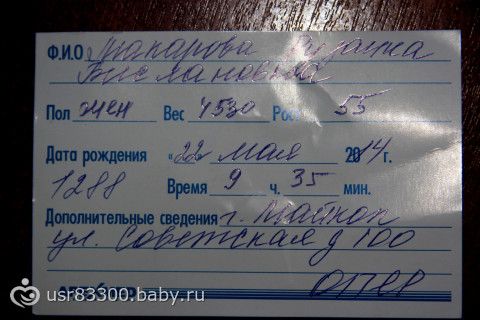 Ф.И.О. Макарова
Бислановна
Пол жен Вес 4530 Рост 55
Дата рождения «22 мая 2014 г.
1288 Время 9 ч. 35 мин.
Дополнительные сведения г. Майкоп
ул. Советская д 100
опер
usr83300.baby.ru